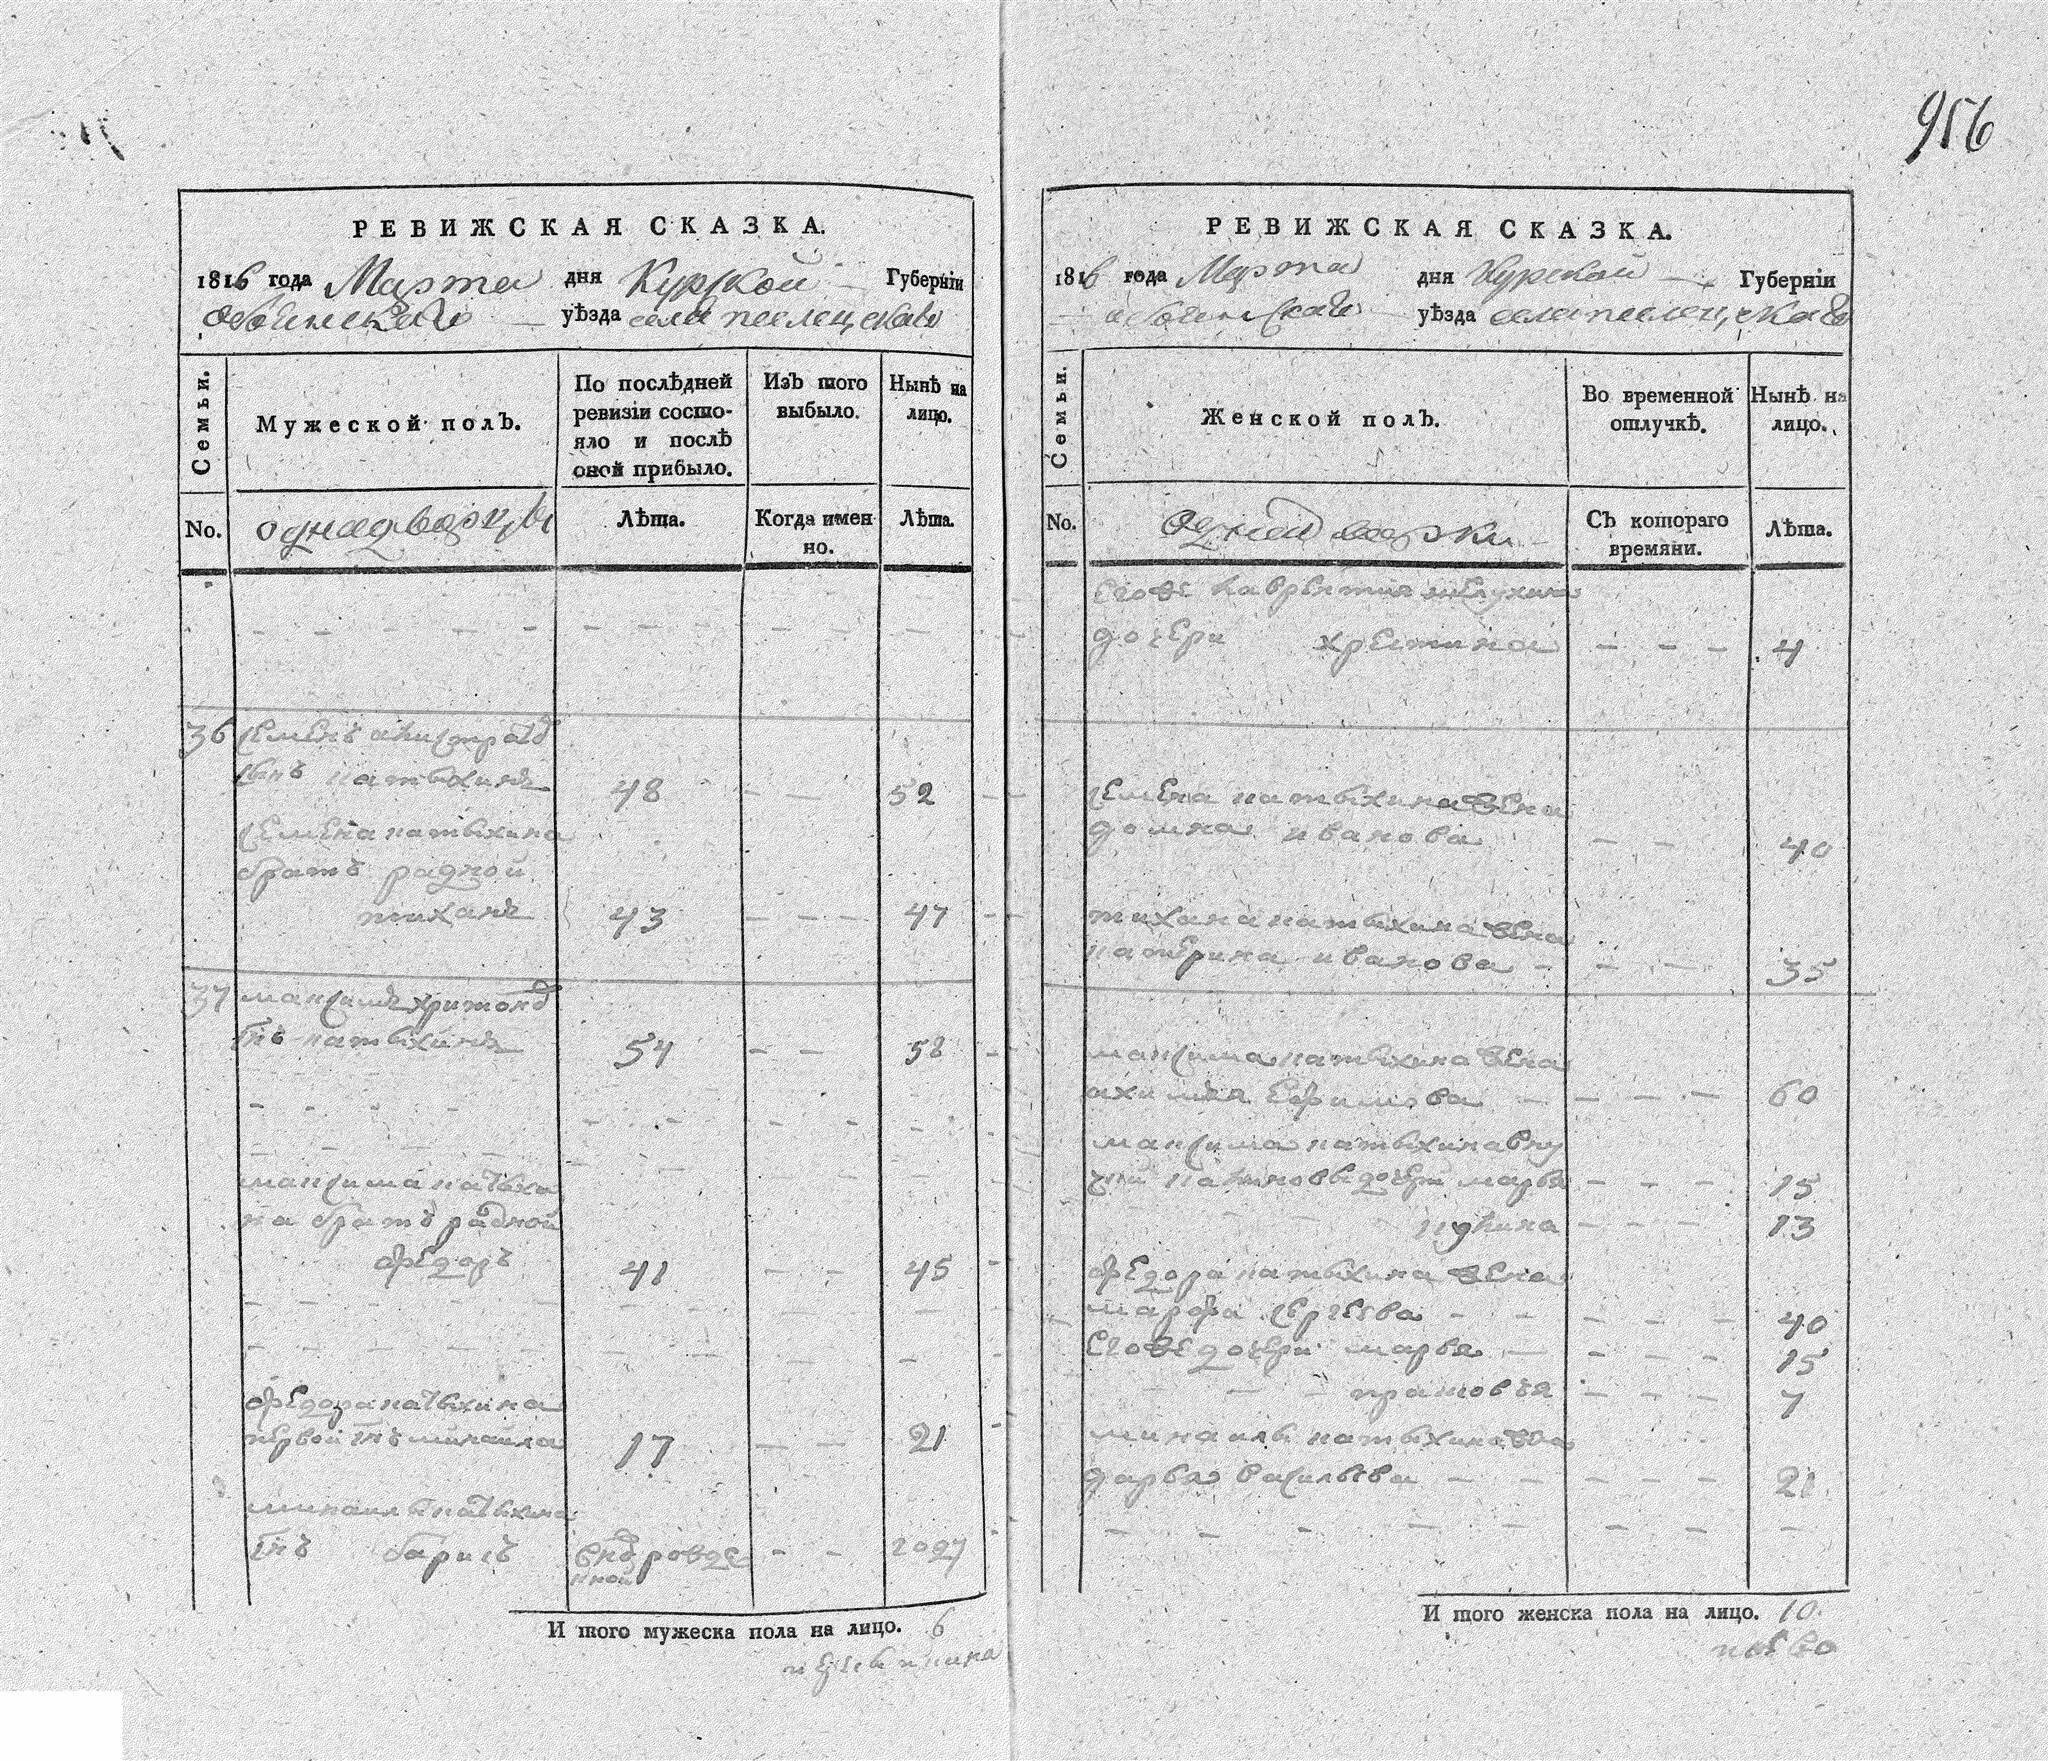 956
РЕВИЖСКАЯ СКАЗКА.
1816 года Марта дня Курской Губернїи
Обоянскаго уѣзда села пселецкаво
Семьи.
Мужеской полЪ.
По послѣдней ревизїи состо-
яло и послѣ оной прибыло.
ИзЪ того выбыло.
Нынѣ на лицо.
No.
однадворцы
Лѣта.
Когда имен
но.
Лѣта.
36 семенъ
сынъ катыхинъ 48 52
семена катыхина
братъ радной
тиханъ 43 47
37 максимъ
снъ катыхинъ 54 58
максима катыхи
на братъ радной
федоръ 41 45
федора катыхина
первой снъ михаила 17 21
михаила катыхина
снъ барисъ рожде
нной 2 году
И того мужеска пола на лицо. 6
РЕВИЖСКАЯ СКАЗКА.
1816 года Марта дня Курской Губернїи
обоянскаго уѣзда села пселецкаго
Семьи.
Женской полЪ.
Во временной отлучкѣ.
Нынѣ на лицо.
No.
Однадворки
СЪ котораго
времяни.
Лѣта.
егоже лаврентия
дочери христина 4
семена катыхина жена
домна иванова 40
тихана катыхина жена
катерина иванова 35
максима катыхина жена
ефимова 60
максима катыхина вну
дочери марья 15
13
федора катыхина жена
марфа сергеева 40
егоже дочери марья 15
прасковья 7
михаилы катыхина жена
дарья васильева 21
И того женска пола на лицо. 10